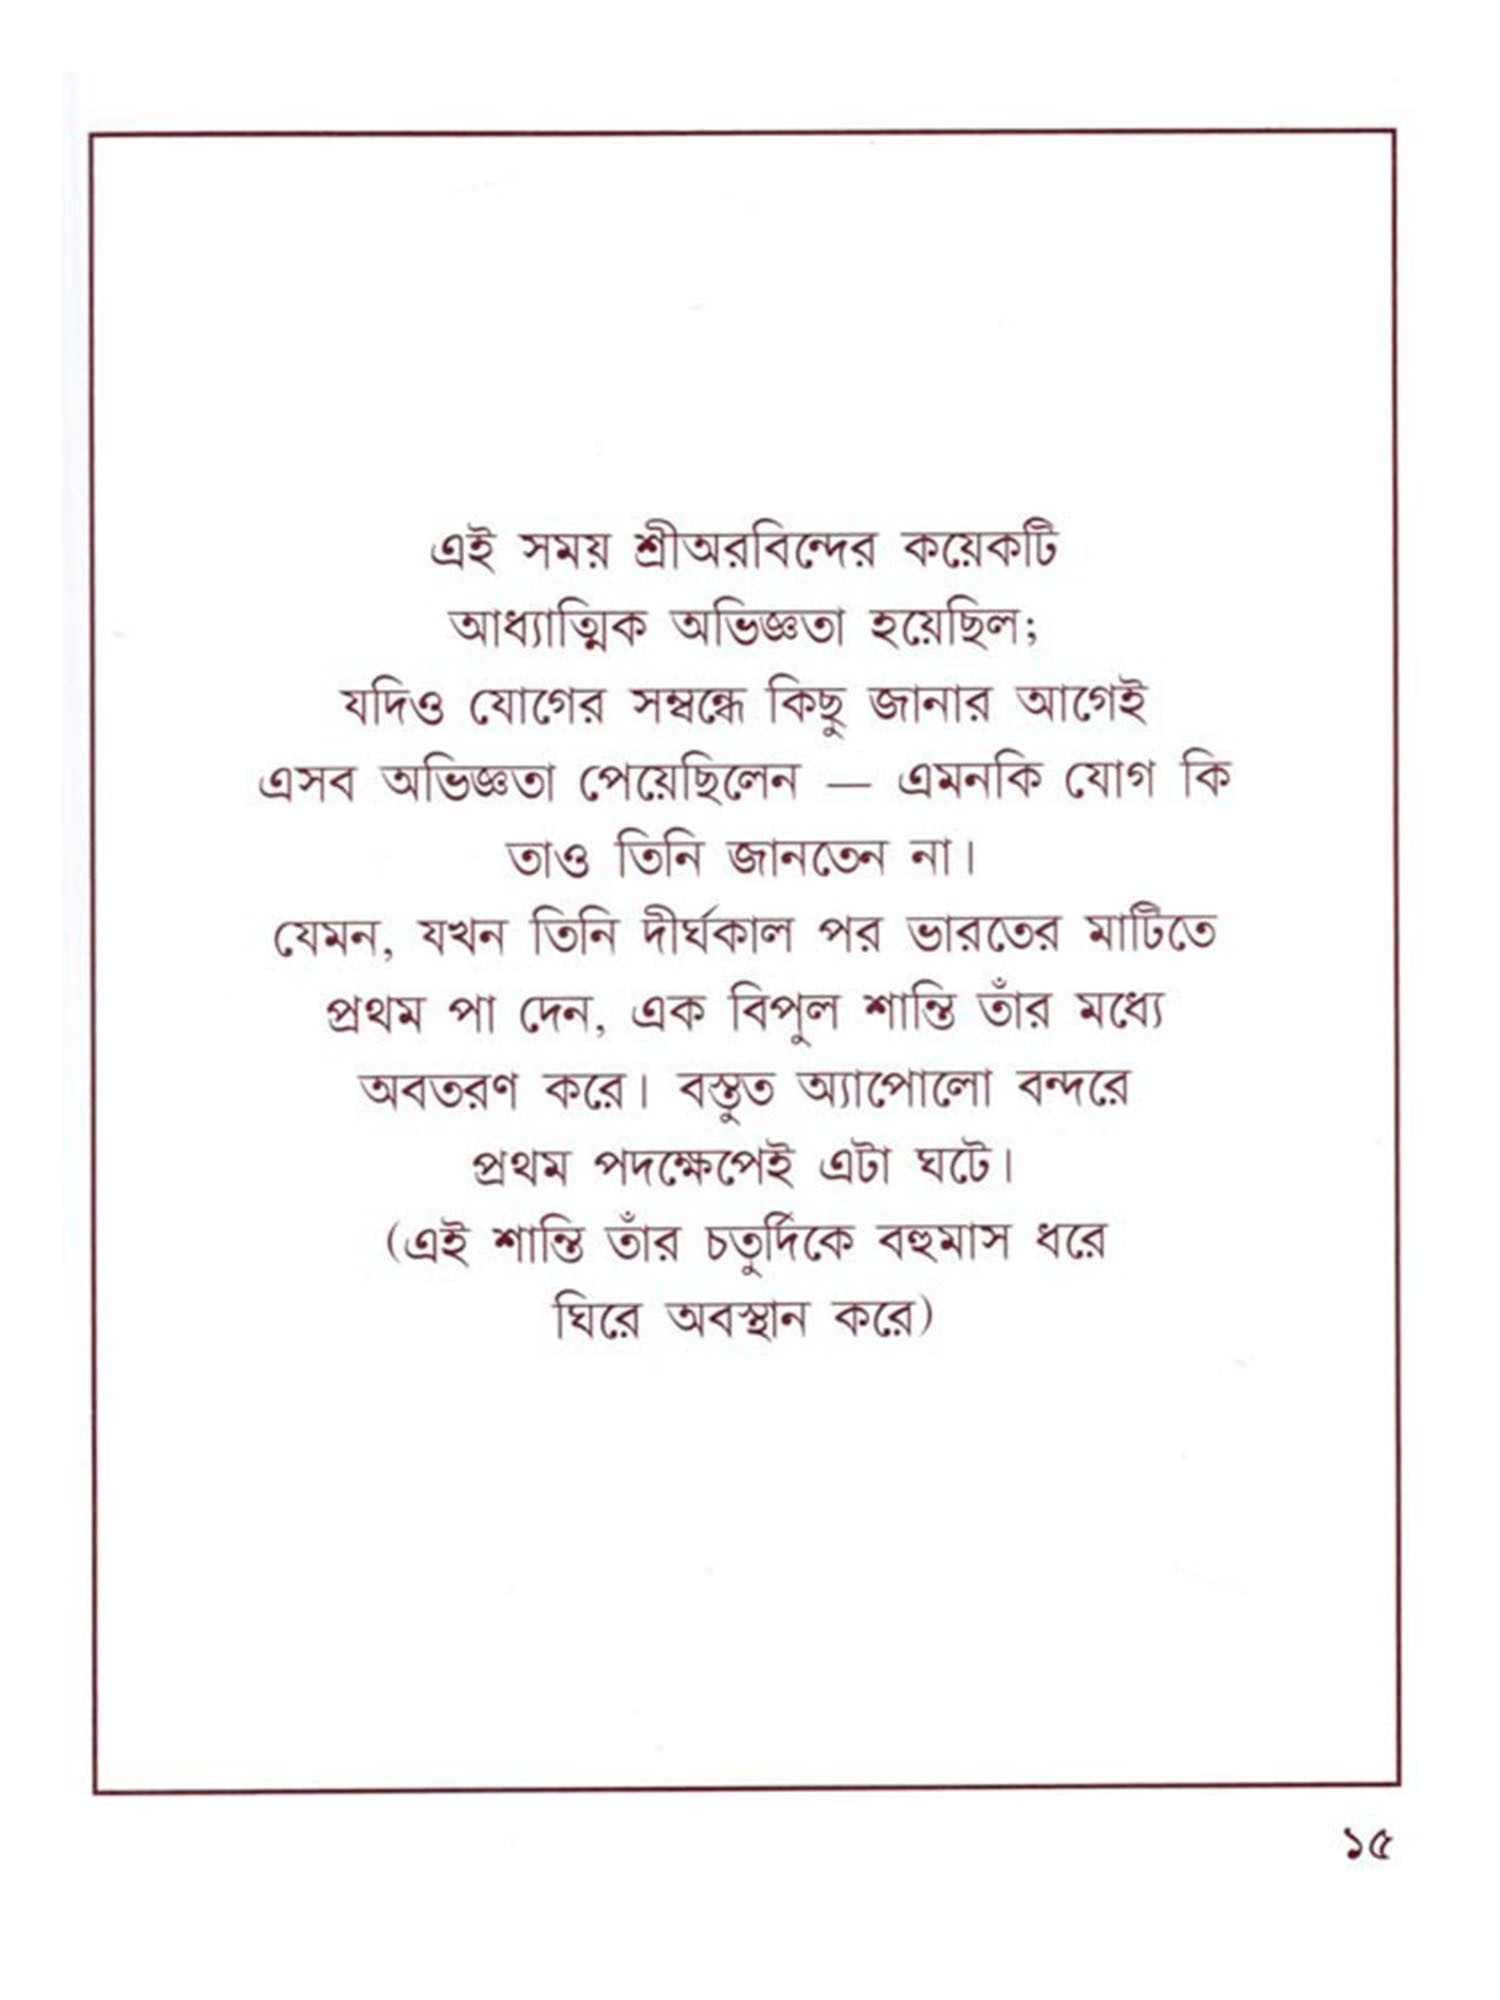 এই সময় শ্রীঅরবিন্দের কয়েকটি
আধ্যাত্মিক অভিজ্ঞতা হয়েছিল;
যদিও যোগের সম্বন্ধে কিছু জানার আগেই
এসব অভিজ্ঞতা পেয়েছিলেন — এমনকি যোগ কি
তাও তিনি জানতেন না।
যেমন, যখন তিনি দীর্ঘকাল পর ভারতের মাটিতে
প্রথম পা দেন, এক বিপুল শান্তি তাঁর মধ্যে
অবতরণ করে। বস্তুত অ্যাপোলো বন্দরে
প্রথম পদক্ষেপেই এটা ঘটে।
(এই শান্তি তাঁর চতুর্দিকে বহুমাস ধরে
ঘিরে অবস্থান করে)
১৫